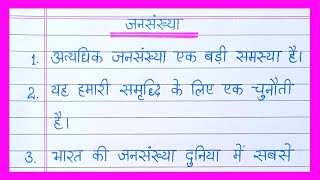 जनसंख्या
1. अत्यधिक जनसंख्या एक बड़ी समस्या है।
2. यह हमारी समृद्धि के लिए एक चुनौती
है।
3. भारत की जनसंख्या दुनिया में सबसे